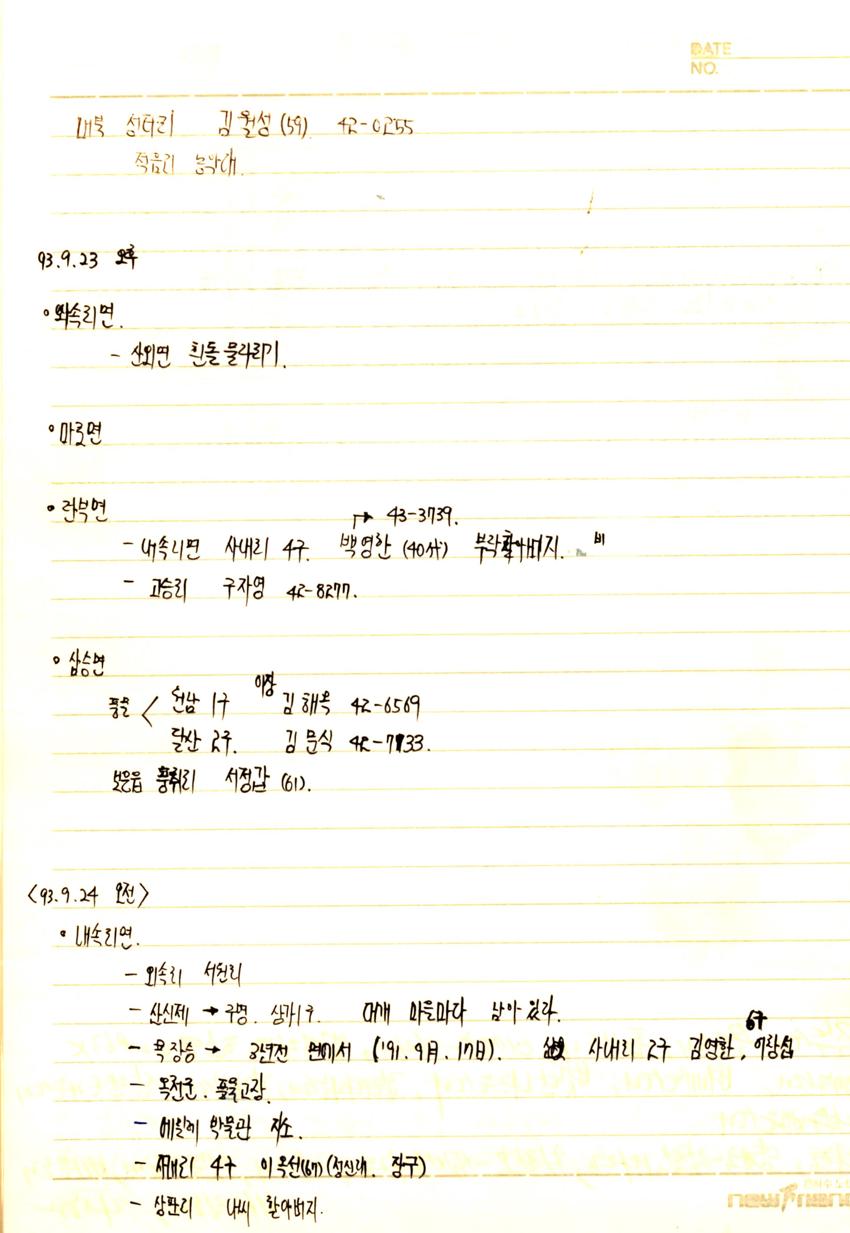 DATE
NO.
내북 성티리 김월성 (59). 42-0255
적음리 농악대.
93.9.23 오후
• 외속리면.
- 산외면 흰돌물다리기.
• 마로면
• 탄부면
43-3739.
- 내속리면 사내리 4구. 백영한 (40세) 부락할아버지. 비
- 고승리 구자영 42-8277.
• 삼승면
풍물 < 천남 1구 이장 김해옥 42-6569
달산 2구. 김문식 42-7133.
보은읍 풍취리 서정갑 (61).
<93.9.24 오전>
• 내속리면.
- 외속리 서원리
- 산신제 → 구병. 상가1구. 대개 마을마다 남아있다.
67
- 목장승 → 2년전 면에서 ('91. 9월. 17일). 사내리 2구 김영환, 이창섭
- 목천군. 풍물고장.
- 에밀레 박물관 자소.
- 사내리 4구 이옥선(67) (장구)
- 상판리 나씨 할아버지.